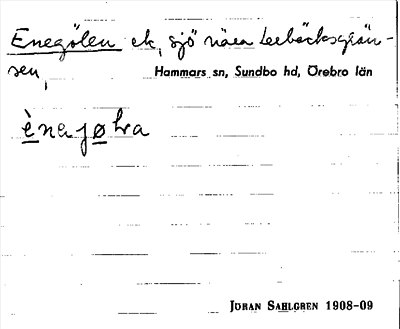 Enegölen ek, sjö nära Leebäcksgrän-
sen,
Hammars sn, Sundbo hd, Örebro län
ènejøl̥va
JÖRAN SAHLGREN 1908-09